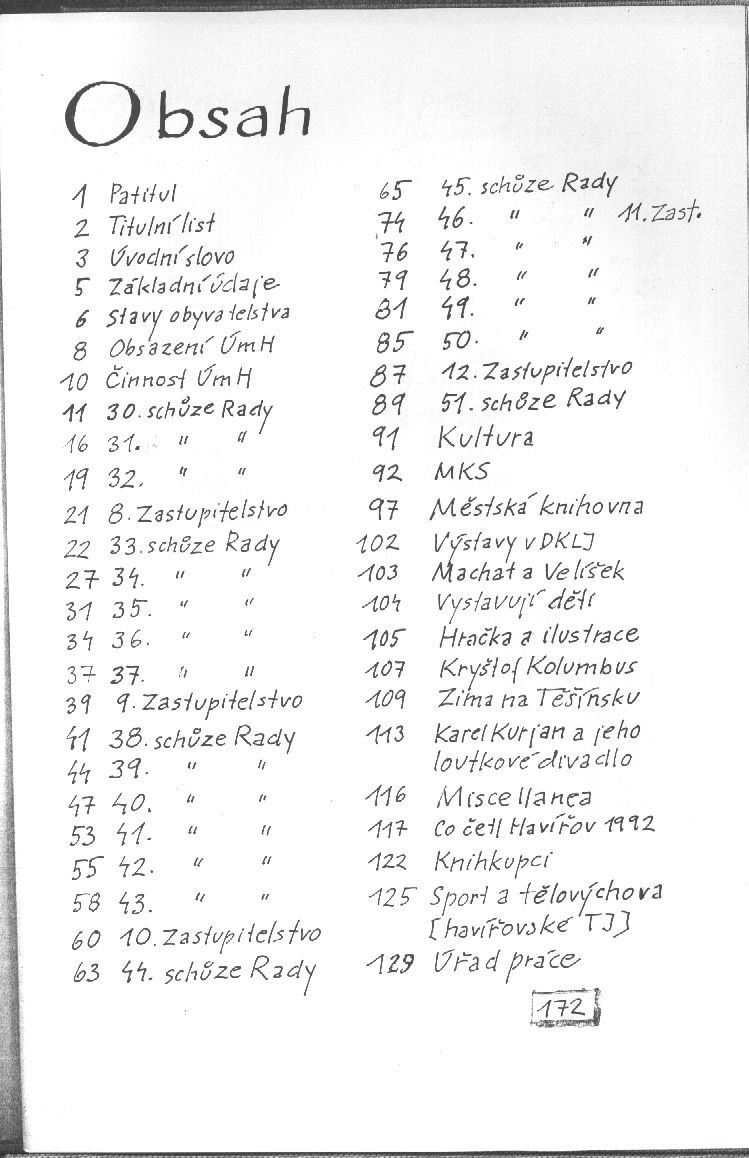 Obsah
1 Patitul
2 Titulní list
3 Úvodní slovo
5 Základní údaje
6 Stavy obyvatelstva
8 Obsazení ÚmH
10 Činnost ÚmH
11 30. schůze Rady
16 31. " "
19 32. " "
21 8. Zastupitelstvo
22 33. schůze Rady
27 34. " "
31 35. " "
34 36. " "
37 37. " "
39 9. Zastupitelstvo
41 38. schůze Rady
44 39. " "
47 40. " "
53 41. " "
55 42. " "
58 43. " "
60 10. Zastupitelstvo
63 44. schůze Rady
65 45. schůze Rady
74 46. " " 11. Zast.
76 47. " "
79 48. " "
81 49. " "
85 50. " "
87 12. Zastupitelstvo
89 51. schůze Rady
91 Kultura
92 MKS
97 Městská knihovna
102 Výstavy v DKLJ
103 Machat a Velíšek
104 Vystavují děti
105 Hračka a ilustrace
107 Kryštof Kolumbus
109 Zima na Těšínsku
113 Karel Kurjan a jeho
loutkové divadlo
116 Miscellanea
117 Co četl Havířov 1992
122 Knihkupci
125 Sport a tělovýchova
[havířovské TJ]
129 Úřad práce
172